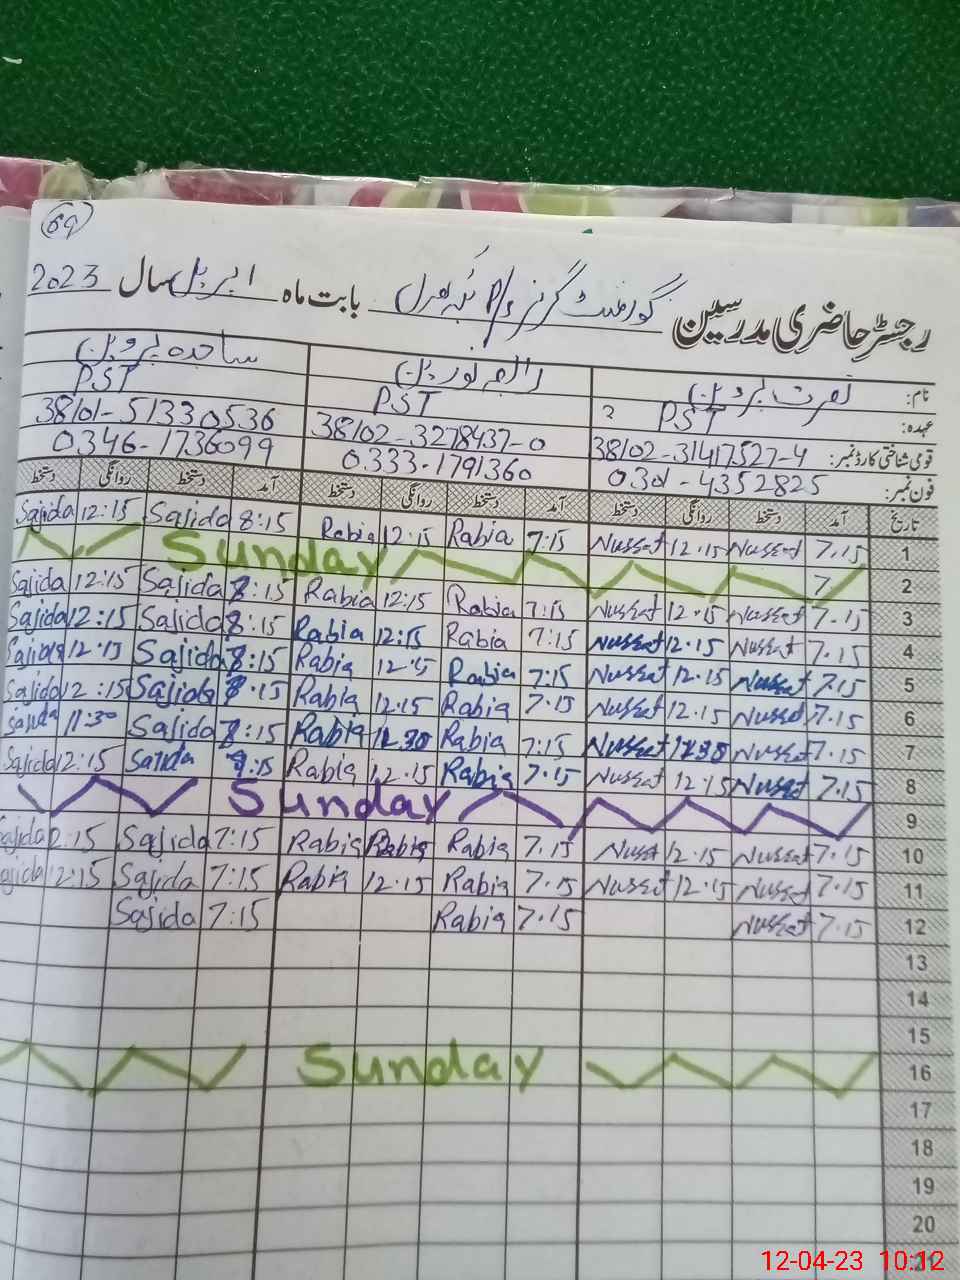 69
رجسٹر حاضری مدرسین گورنمنٹ گرلز P/S بابت ماہ اپریل سال 2023
نام: نصرت پروین رابعہ نورین ساجدہ پروین
عہدہ: PST PST PST
قومی شناختی کارڈ نمبر: 38102-31417527-4 38102-3278437-0 38101-51330536
فون نمبر: 0301-4352825 0333-1791360 0346-1736099
تاریخ آمد دستخط روانگی دستخط آمد دستخط روانگی دستخط آمد دستخط روانگی دستخط
1 7.15 Nussat 12.15 Nussat 7:15 Rabia 12:15 Rabia 8:15 Sajida 12:15 Sajida
2 7 Sunday
3 7.15 Nussat 12.15 Nussat 7:15 Rabia 12:15 Rabia 8:15 Sajida 12:15 Sajida
4 7.15 Nussat 12.15 Nussat 7:15 Rabia 12:15 Rabia 8:15 Sajida 12:15 Sajida
5 7.15 Nussat 12.15 Nussat 7:15 Rabia 12:15 Rabia 8:15 Sajida 12:15 Sajida
6 7.15 Nussat 12.15 Nussat 7.15 Rabia 12.15 Rabia 8.15 Sajida 12:15 Sajida
7 7.15 Nussat Nussat 7:15 Rabia Rabia 8:15 Sajida 11:30 Sajida
8 7.15 Nussat 12.15 Nussat 7.15 Rabia 12.15 Rabia Sajida 12:15 Sajida
9 Sunday
10 7.15 Nussat 12.15 Nussat 7.15 Rabia Rabia Rabia 7:15 Sajida 2:15 Sajida
11 7.15 Nussat 12.15 Nussat 7.15 Rabia 12.15 Rabia 7:15 Sajida 12:15 Sajida
12 7.15 Nussat 7.15 Rabia 7:15 Sajida
13
14
15
16 Sunday
17
18
19
20
21
12-04-23 10:12